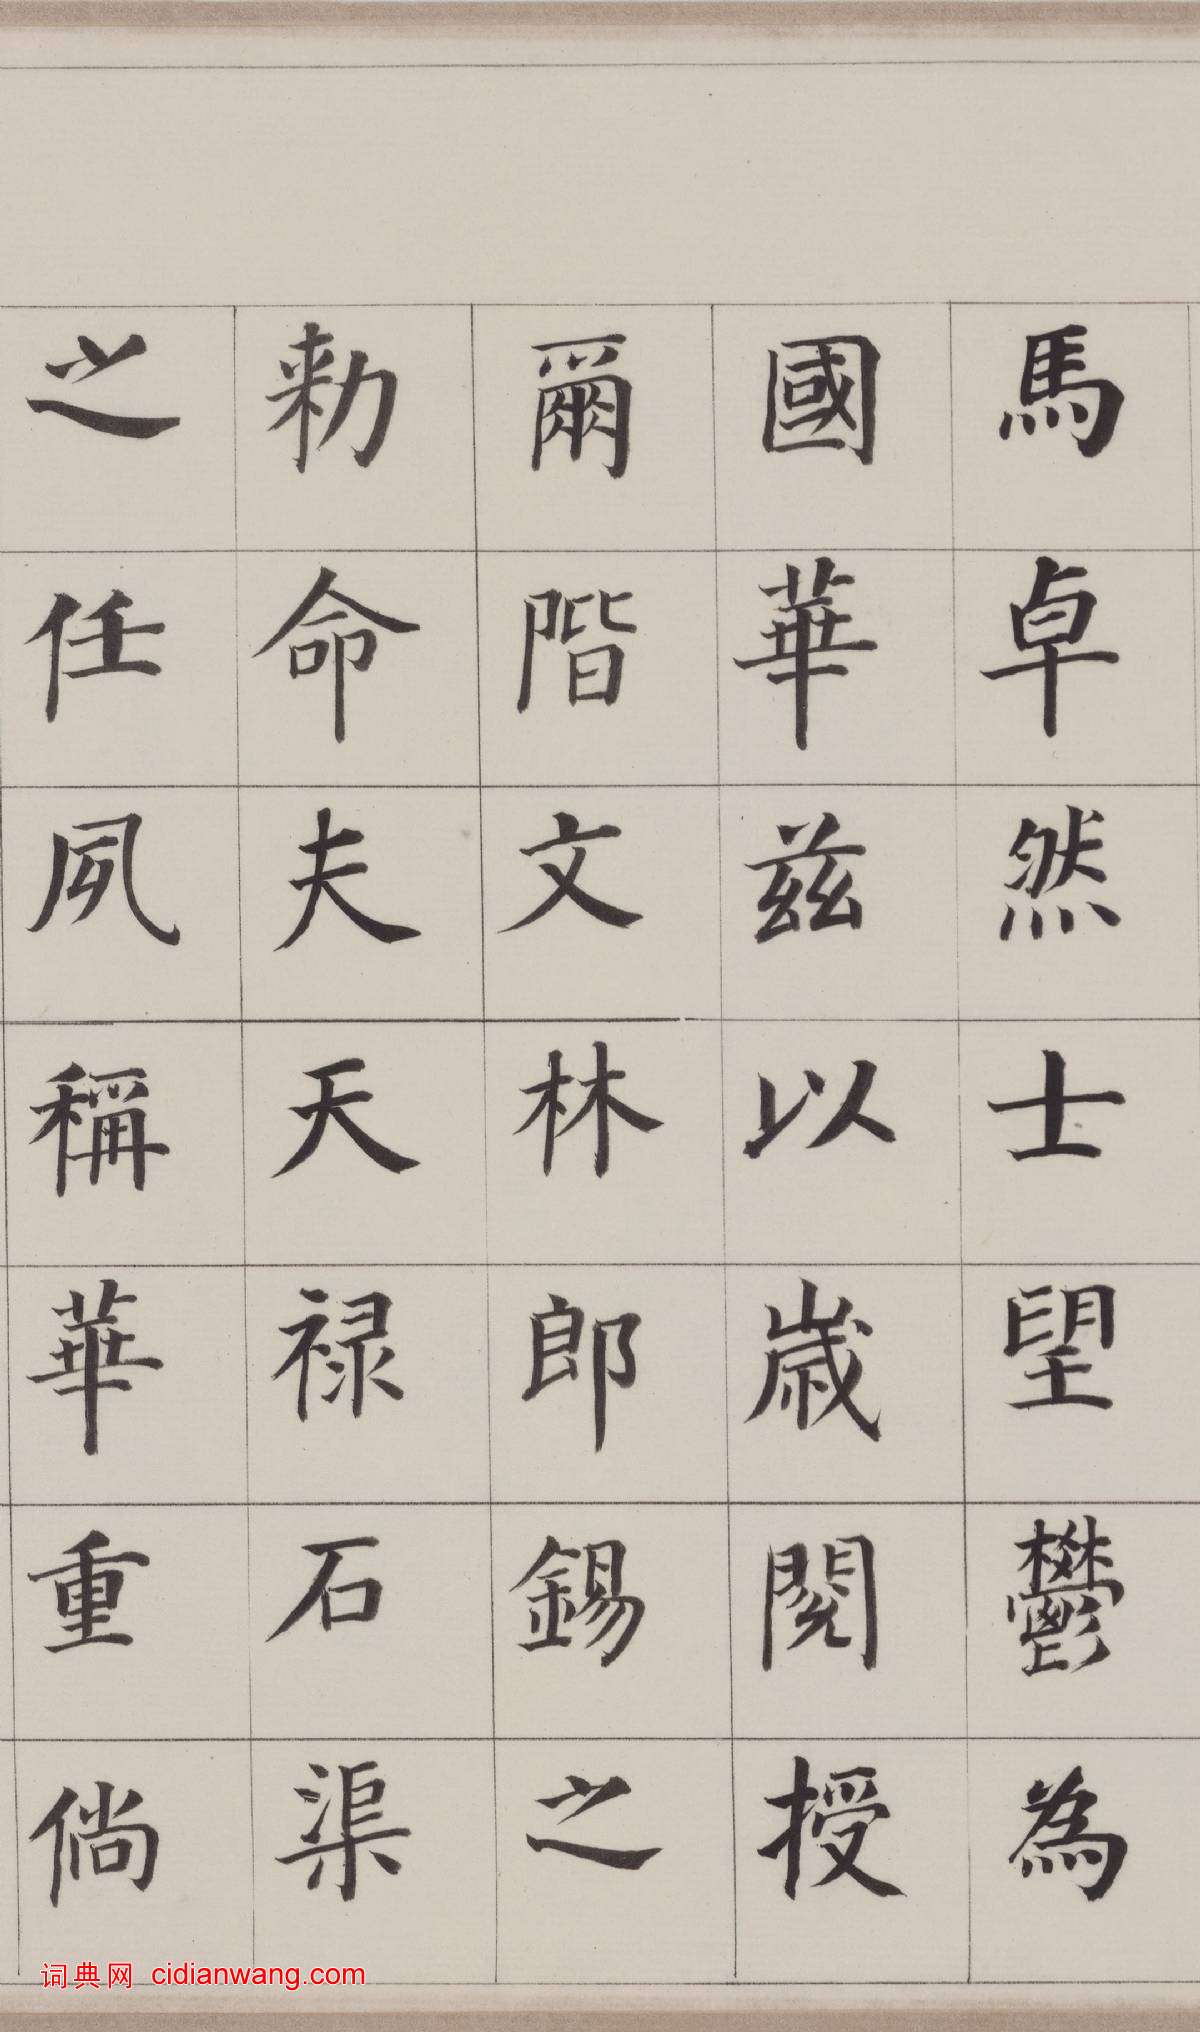 馬卓然士望鬱為
國華兹以歲閱授
爾階文林郎錫之
勑命夫天禄石渠
之任夙稱華重倘
词典网 cidianwang.com